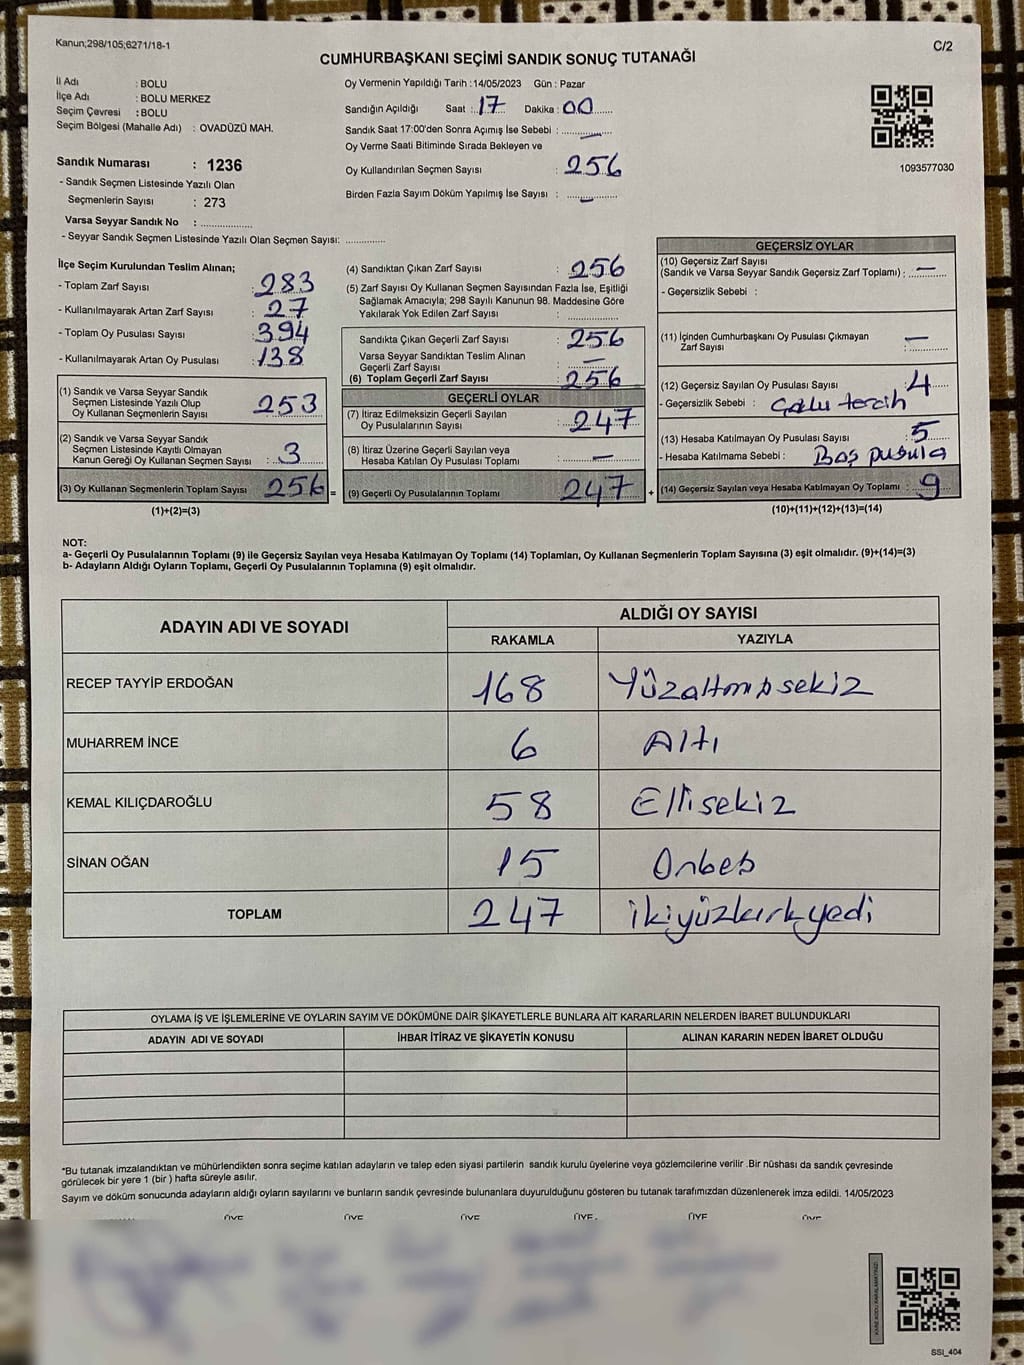 Kanun;298/105;6271/18-1
C/2
CUMHURBAŞKANI SEÇİMİ SANDIK SONUÇ TUTANAĞI
İl Adı : BOLU
İlçe Adı : BOLU MERKEZ
Seçim Çevresi : BOLU
Seçim Bölgesi (Mahalle Adı) : OVADÜZÜ MAH.
Sandık Numarası : 1236
- Sandık Seçmen Listesinde Yazılı Olan
Seçmenlerin Sayısı : 273
Varsa Seyyar Sandık No : ....................
- Seyyar Sandık Seçmen Listesinde Yazılı Olan Seçmen Sayısı: ..............
Oy Vermenin Yapıldığı Tarih : 14/05/2023 Gün : Pazar
Sandığın Açıldığı Saat : 17 Dakika : 00
Sandık Saat 17:00'den Sonra Açımış İse Sebebi : —
Oy Verme Saati Bitiminde Sırada Bekleyen ve
Oy Kullandırılan Seçmen Sayısı : 256
Birden Fazla Sayım Döküm Yapılmış İse Sayısı : —
1093577030
İlçe Seçim Kurulundan Teslim Alınan;
- Toplam Zarf Sayısı : 283
- Kullanılmayarak Artan Zarf Sayısı : 27
- Toplam Oy Pusulası Sayısı : 394
- Kullanılmayarak Artan Oy Pusulası : 138
(1) Sandık ve Varsa Seyyar Sandık
Seçmen Listesinde Yazılı Olup
Oy Kullanan Seçmenlerin Sayısı : 253
(2) Sandık ve Varsa Seyyar Sandık
Seçmen Listesinde Kayıtlı Olmayan
Kanun Gereği Oy Kullanan Seçmen Sayısı : 3
(3) Oy Kullanan Seçmenlerin Toplam Sayısı 256 =
(1)+(2)=(3)
(4) Sandıktan Çıkan Zarf Sayısı : 256
(5) Zarf Sayısı Oy Kullanan Seçmen Sayısından Fazla İse, Eşitliği
Sağlamak Amacıyla; 298 Sayılı Kanunun 98. Maddesine Göre
Yakılarak Yok Edilen Zarf Sayısı : ..............
Sandıkta Çıkan Geçerli Zarf Sayısı : 256
Varsa Seyyar Sandıktan Teslim Alınan
Geçerli Zarf Sayısı : —
(6) Toplam Geçerli Zarf Sayısı : 256
GEÇERLİ OYLAR
(7) İtiraz Edilmeksizin Geçerli Sayılan
Oy Pusulalarının Sayısı : 247
(8) İtiraz Üzerine Geçerli Sayılan veya
Hesaba Katılan Oy Pusulası Toplamı : —
(9) Geçerli Oy Pusulalarının Toplamı 247 +
GEÇERSİZ OYLAR
(10) Geçersiz Zarf Sayısı
(Sandık ve Varsa Seyyar Sandık Geçersiz Zarf Toplamı) : —
- Geçersizlik Sebebi :
(11) İçinden Cumhurbaşkanı Oy Pusulası Çıkmayan
Zarf Sayısı : —
(12) Geçersiz Sayılan Oy Pusulası Sayısı : 4
- Geçersizlik Sebebi : Çoklu tercih
(13) Hesaba Katılmayan Oy Pusulası Sayısı : 5
- Hesaba Katılmama Sebebi : Boş pusula
(14) Geçersiz Sayılan veya Hesaba Katılmayan Oy Toplamı : 9
(10)+(11)+(12)+(13)=(14)
NOT:
a- Geçerli Oy Pusulalarının Toplamı (9) ile Geçersiz Sayılan veya Hesaba Katılmayan Oy Toplamı (14) Toplamları, Oy Kullanan Seçmenlerin Toplam Sayısına (3) eşit olmalıdır. (9)+(14)=(3)
b- Adayların Aldığı Oyların Toplamı, Geçerli Oy Pusulalarının Toplamına (9) eşit olmalıdır.
ADAYIN ADI VE SOYADI ALDIĞI OY SAYISI
RAKAMLA YAZIYLA
RECEP TAYYİP ERDOĞAN 168 Yüzaltmış sekiz
MUHARREM İNCE 6 Altı
KEMAL KILIÇDAROĞLU 58 Ellisekiz
SİNAN OĞAN 15 Onbeş
TOPLAM 247 ikiyüzkırkyedi
OYLAMA İŞ VE İŞLEMLERİNE VE OYLARIN SAYIM VE DÖKÜMÜNE DAİR ŞİKAYETLERLE BUNLARA AİT KARARLARIN NELERDEN İBARET BULUNDUKLARI
ADAYIN ADI VE SOYADI İHBAR İTİRAZ VE ŞİKAYETİN KONUSU ALINAN KARARIN NEDEN İBARET OLDUĞU
*Bu tutanak imzalandıktan ve mühürlendikten sonra seçime katılan adayların ve talep eden siyasi partilerin sandık kurulu üyelerine veya gözlemcilerine verilir .Bir nüshası da sandık çevresinde
görülecek bir yere 1 (bir ) hafta süreyle asılır.
Sayım ve döküm sonucunda adayların aldığı oyların sayılarını ve bunların sandık çevresinde bulunanlara duyurulduğunu gösteren bu tutanak tarafımızdan düzenlenerek imza edildi. 14/05/2023
ÜYE ÜYE ÜYE ÜYE ÜYE ÜYE
SSI_404